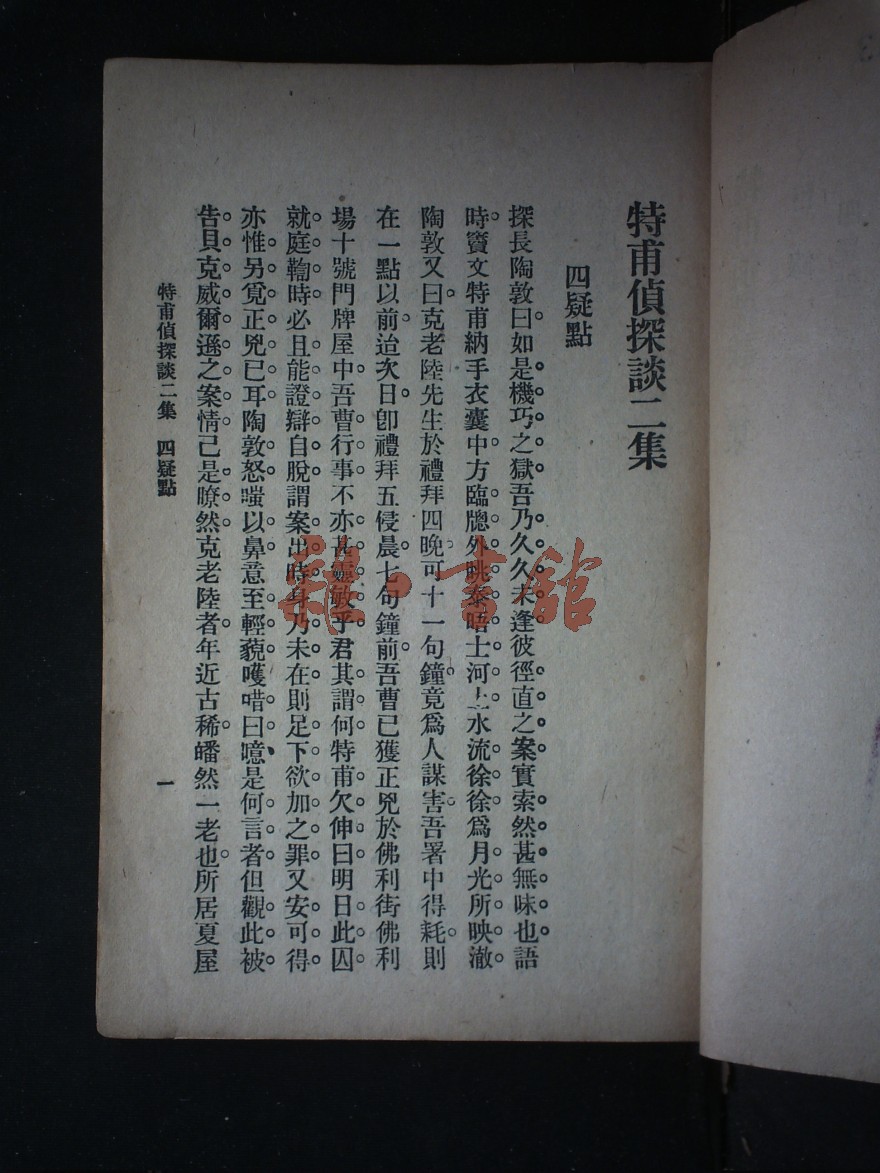 特甫偵探談二集
四疑點
探長陶敦曰。如是機巧之獄。吾乃久久未逢。彼徑直之案。實索然甚無味也。語
時。竇文特甫納手衣囊中。方臨牕外眺。泰晤士河上。水流徐徐。爲月光所映澈。
陶敦又曰。克老陸先生於禮拜四晚。可十一句鐘。竟爲人謀害。吾署中得耗。則
在一點以前。迨次日。卽禮拜五侵晨七句鐘前。吾曹已獲正兇於佛利街佛利
場十號門牌屋中。吾曹行事。不亦甚靈敏乎。君其謂何。特甫欠伸曰。明日此囚
就庭鞫時。必且能證辯自脫。謂案出時。身乃未在。則足下欲加之罪。又安可得。
亦惟另覓正兇已耳。陶敦怒嗤以鼻。意至輕藐。嘆唶曰。噫。是何言者。但觀此被
告貝克威爾遜之案情。已是瞭然。克老陸者。年近古稀。皤然一老也。所居夏屋
特甫偵探談二集 四疑點
一
雜·書館